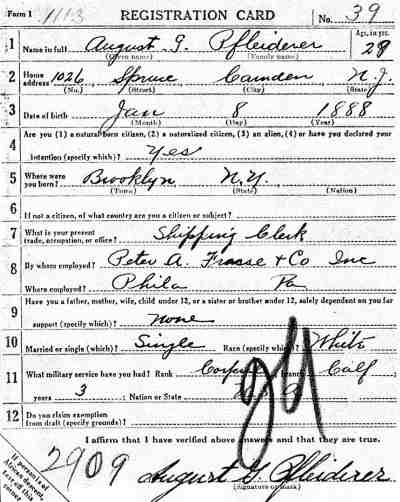 Form 1 1113 REGISTRATION CARD No. 39
1 Name in full August G. Pfleiderer Age, in yrs. 29
(Given name) (Family name)
2 Home address 1026 Spruce Camden N.J.
(No.) (Street) (City) (State)
3 Date of birth Jan 8 1888
(Month) (Day) (Year)
4 Are you (1) a natural-born citizen, (2) a naturalized citizen, (3) an alien, (4) or have you declared your
intention (specify which)? Yes
5 Where were you born? Brooklyn N.Y.
(Town) (State) (Nation)
6 If not a citizen, of what country are you a citizen or subject?
7 What is your present trade, occupation, or office? Shipping Clerk
8 By whom employed? Peter A. Frasse & Co Inc
Where employed? Phila Pa
9 Have you a father, mother, wife, child under 12, or a sister or brother under 12, solely dependent on you for
support (specify which)? None
10 Married or single (which)? Single Race (specify which)? White
11 What military service have you had? Rank branch
years 3 ; Nation or State
12 Do you claim exemption from draft (specify grounds)?
I affirm that I have verified above answers and that they are true.
2909
August G. Pfleiderer
(Signature or mark)
If person is of African descent,